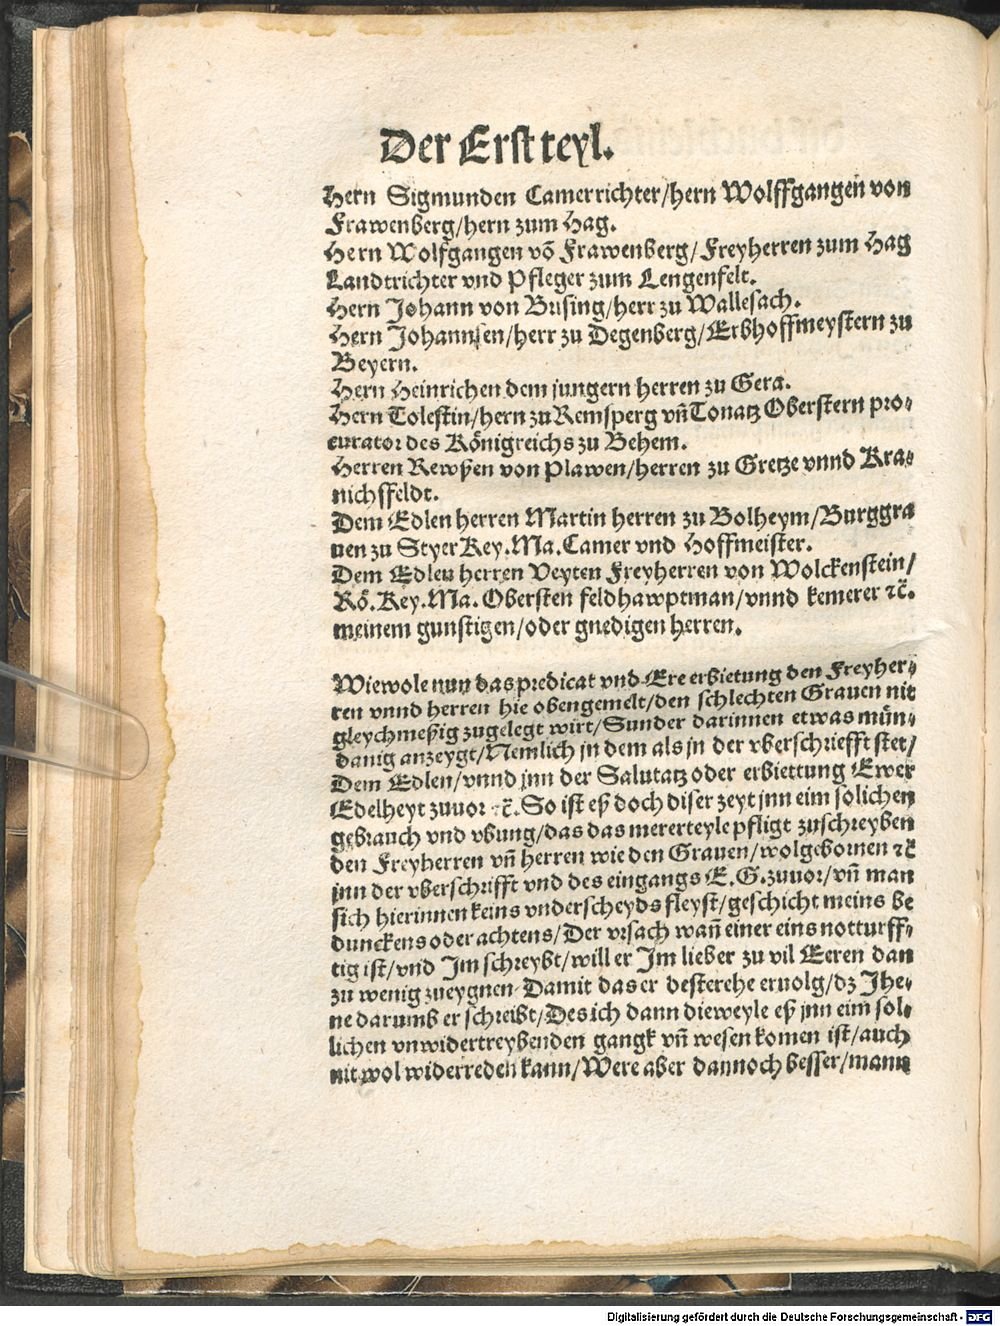 Der Erst teyl.
Hern Sigmunden Camerrichter/hern Wolffgangen von
Frawenberg/hern zum Hag.
Hern Wolfgangen võ Frawenberg/Freyherren zum Hag
Landtrichter vnd Pfleger zum Lengenfelt.
Hern Johann von Busing/herr zu Wallesach.
Hern Johannsen/herr zu Degenberg/Erbhoffmeystern zu
Beyern.
Hern Heinrichen dem jungern herren zu Gera.
Hern Tolestin/hern zu Remsperg vñ Tonatz Oberstern pro-
curator des Königreichs zu Behem.
Herren Rewßen von Plawen/herren zu Gretze vnnd Kra-
nichsffeldt.
Dem Edlen herren Martin herren zu Bolheym/Burggra
uen zu Styer Key.Ma.Camer vnd Hoffmeister.
Dem Edlen herren Veyten Freyherren von Wolckenstein/
Rö.Key.Ma. Obersten feldhawptman/vnnd kemerer ⁊c̃.
meinem gunstigen/oder gnedigen herren.
Wiewole nun das predicat vnd Ere erbietung den Freyher-
ren vnnd herren hie obengemelt/den schlechten Grauen nit
gleychmeßig zugelegt wirt/Sunder darinnen etwas mün-
danig anzeygt/Nemlich jn dem als jn der vberschriefft stet/
Dem Edlen/vnnd jnn der Salutatz oder erbiettung Ewer
Edelheyt zuuor ⁊c̃. So ist eß doch diser zeyt jnn eim solichen
gebrauch vnd vbung/das das mererteyle pfligt zuschreyben
den Freyherren vñ herren wie den Grauen/wolgebornen ⁊c̃
jnn der vberschrifft vnd des eingangs E.G.zuuor/vñ man
sich hierinnen keins vnderscheyds fleyst/geschicht meins be
dunckens oder achtens/Der vrsach wañ einer eins notturff-
tig ist/vnd Im schreybt/will er Im lieber zu vil Eeren dan
zu wenig zueygnen Damit das er desterehe eruolg/dz Ihe-
ne darumb er schreibt/Des ich dann dieweyle eß jnn eim sol-
lichen vnwidertreybenden gangk vñ wesen komen ist/auch
nit wol widerreden kann/Were aber dannoch besser/mann
Digitalisierung gefördert durch die Deutsche Forschungsgemeinschaft - DFG